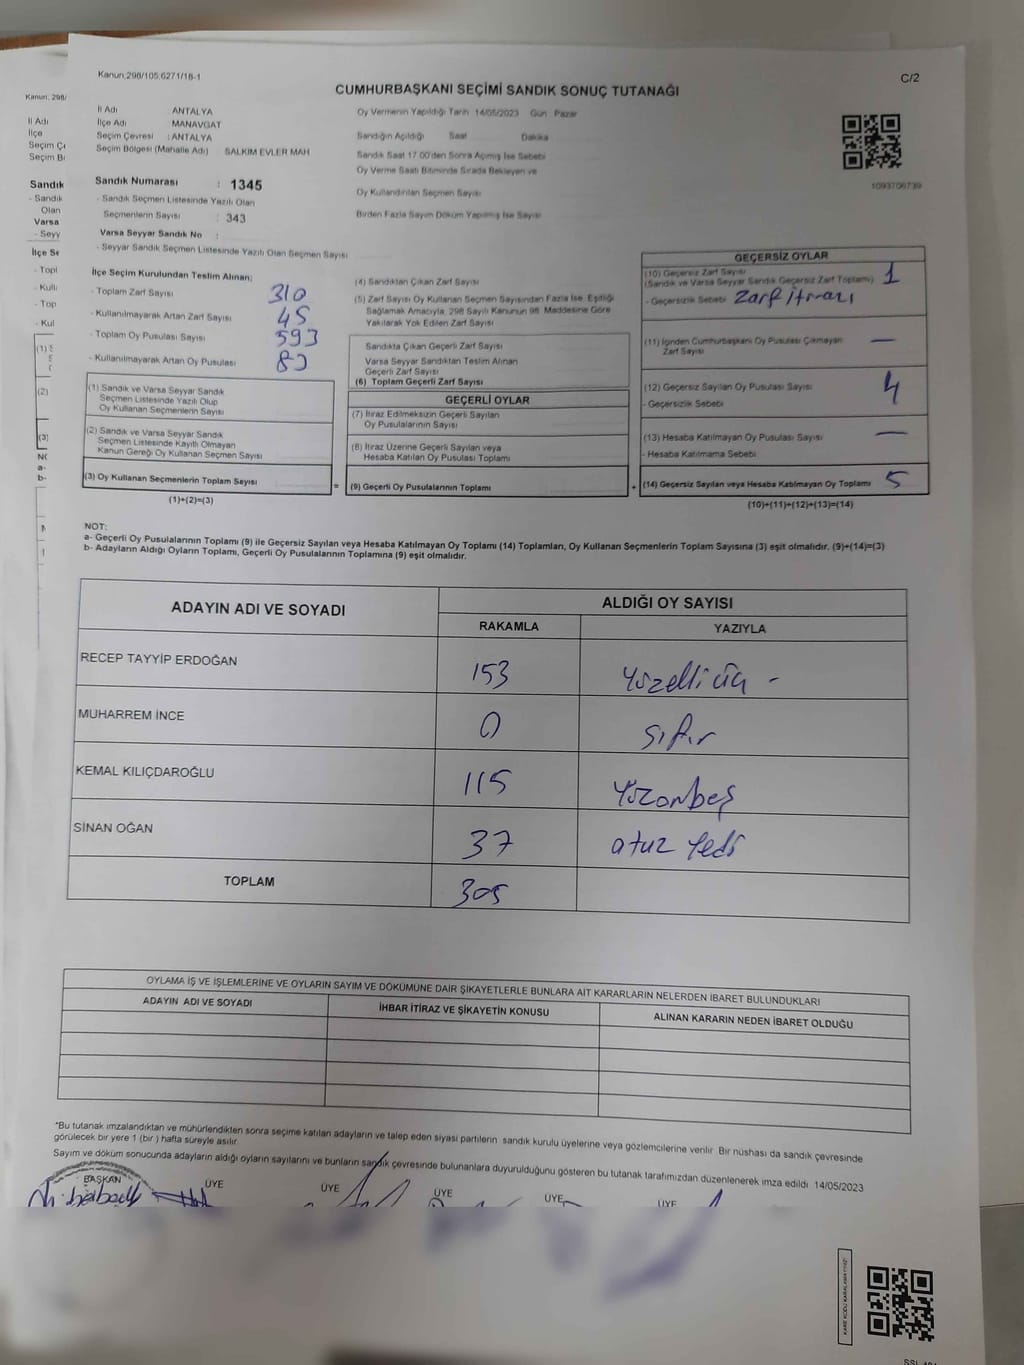 Kanun;298/105,6271/18-1
C/2
CUMHURBAŞKANI SEÇİMİ SANDIK SONUÇ TUTANAĞI
İl Adı ANTALYA
İlçe Adı MANAVGAT
Seçim Çevresi : ANTALYA
Seçim Bölgesi (Mahalle Adı) SALKIM EVLER MAH
Oy Vermenin Yapıldığı Tarih 14/05/2023 Gün Pazar
Sandığın Açıldığı Saat Dakika
Sandık Saat 17.00'den Sonra Açılmış İse Sebebi
Oy Verme Saati Bitiminde Sırada Bekleyen ve
Oy Kullandırılan Seçmen Sayısı
Birden Fazla Sayım Döküm Yapılmış İse Sayısı
1093706739
Sandık Numarası : 1345
- Sandık Seçmen Listesinde Yazılı Olan
Seçmenlerin Sayısı : 343
Varsa Seyyar Sandık No :
- Seyyar Sandık Seçmen Listesinde Yazılı Olan Seçmen Sayısı
İlçe Seçim Kurulundan Teslim Alınan;
- Toplam Zarf Sayısı 310
- Kullanılmayarak Artan Zarf Sayısı 45
- Toplam Oy Pusulası Sayısı 593
- Kullanılmayarak Artan Oy Pusulası
(1) Sandık ve Varsa Seyyar Sandık
Seçmen Listesinde Yazılı Olup
Oy Kullanan Seçmenlerin Sayısı
(2) Sandık ve Varsa Seyyar Sandık
Seçmen Listesinde Kayıtlı Olmayan
Kanun Gereği Oy Kullanan Seçmen Sayısı
(3) Oy Kullanan Seçmenlerin Toplam Sayısı
(1)+(2)=(3)
(4) Sandıktan Çıkan Zarf Sayısı
(5) Zarf Sayısı Oy Kullanan Seçmen Sayısından Fazla İse, Eşitliği
Sağlamak Amacıyla, 298 Sayılı Kanunun 98. Maddesine Göre
Yakılarak Yok Edilen Zarf Sayısı
Sandıkta Çıkan Geçerli Zarf Sayısı
Varsa Seyyar Sandıktan Teslim Alınan
Geçerli Zarf Sayısı
(6) Toplam Geçerli Zarf Sayısı
GEÇERLİ OYLAR
(7) İtiraz Edilmeksizin Geçerli Sayılan
Oy Pusulalarının Sayısı
(8) İtiraz Üzerine Geçerli Sayılan veya
Hesaba Katılan Oy Pusulası Toplamı
= (9) Geçerli Oy Pusulalarının Toplamı
GEÇERSİZ OYLAR
(10) Geçersiz Zarf Sayısı
(Sandık ve Varsa Seyyar Sandık Geçersiz Zarf Toplamı) 1
- Geçersizlik Sebebi Zarf itirazı
(11) İçinden Cumhurbaşkanı Oy Pusulası Çıkmayan
Zarf Sayısı —
(12) Geçersiz Sayılan Oy Pusulası Sayısı 4
- Geçersizlik Sebebi
(13) Hesaba Katılmayan Oy Pusulası Sayısı —
- Hesaba Katılmama Sebebi
+ (14) Geçersiz Sayılan veya Hesaba Katılmayan Oy Toplamı 5
(10)+(11)+(12)+(13)=(14)
NOT:
a- Geçerli Oy Pusulalarının Toplamı (9) ile Geçersiz Sayılan veya Hesaba Katılmayan Oy Toplamı (14) Toplamları, Oy Kullanan Seçmenlerin Toplam Sayısına (3) eşit olmalıdır. (9)+(14)=(3)
b- Adayların Aldığı Oyların Toplamı, Geçerli Oy Pusulalarının Toplamına (9) eşit olmalıdır.
ADAYIN ADI VE SOYADI ALDIĞI OY SAYISI
RAKAMLA YAZIYLA
RECEP TAYYİP ERDOĞAN 153 Yüzelli üç -
MUHARREM İNCE 0 sıfır
KEMAL KILIÇDAROĞLU 115 Yüzonbeş
SİNAN OĞAN 37 otuz Yedi
TOPLAM 305
OYLAMA İŞ VE İŞLEMLERİNE VE OYLARIN SAYIM VE DÖKÜMÜNE DAİR ŞİKAYETLERLE BUNLARA AİT KARARLARIN NELERDEN İBARET BULUNDUKLARI
ADAYIN ADI VE SOYADI İHBAR İTİRAZ VE ŞİKAYETİN KONUSU ALINAN KARARIN NEDEN İBARET OLDUĞU
*Bu tutanak imzalandıktan ve mühürlendikten sonra seçime katılan adayların ve talep eden siyasi partilerin sandık kurulu üyelerine veya gözlemcilerine verilir. Bir nüshası da sandık çevresinde
görülecek bir yere 1 (bir ) hafta süreyle asılır.
Sayım ve döküm sonucunda adayların aldığı oyların sayılarını ve bunların sandık çevresinde bulunanlara duyurulduğunu gösteren bu tutanak tarafımızdan düzenlenerek imza edildi. 14/05/2023
BAŞKAN ÜYE ÜYE ÜYE ÜYE ÜYE